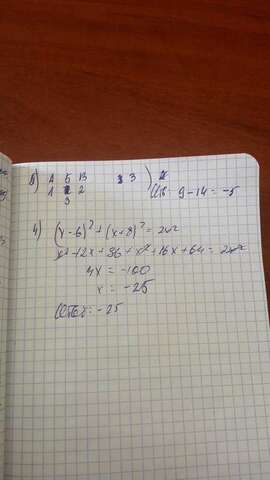 В) А Б В
1 2
3
Отв: 9-14=-5
4) (x-6)²+(x+8)²=2x²
x²-12x+36+x²+16x+64=2x²
4x=-100
x=-25
Ответ: -25